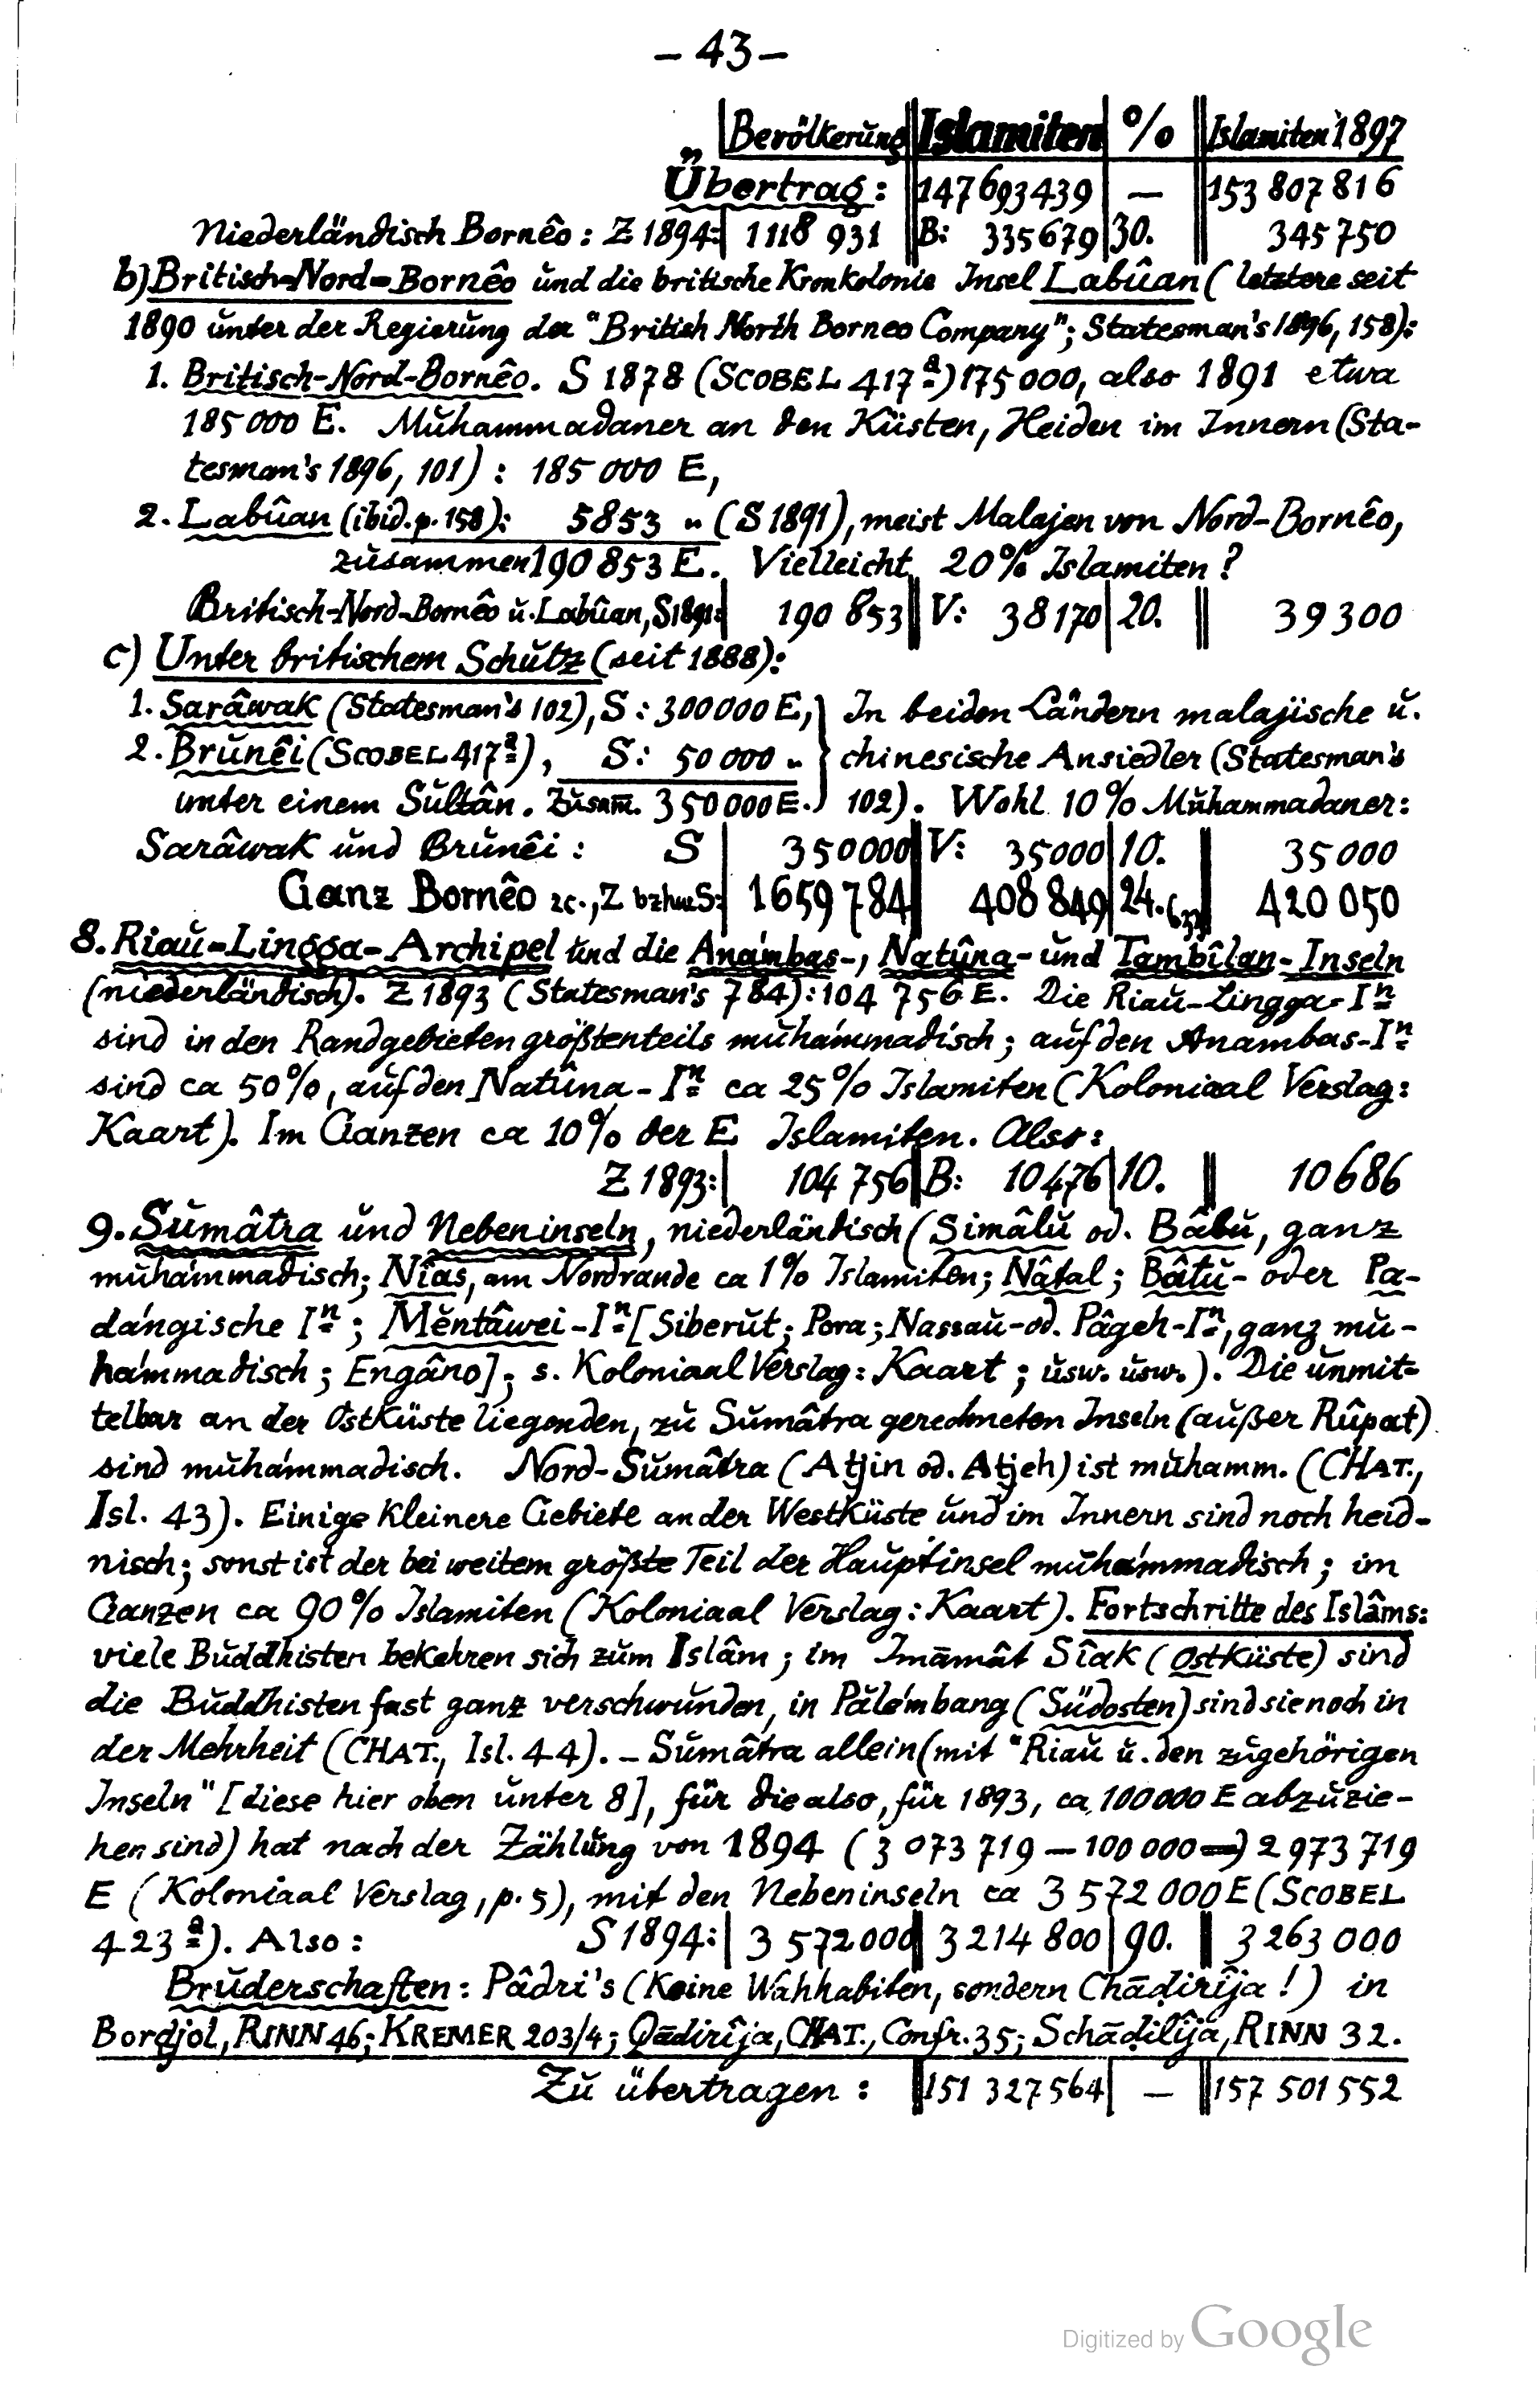 – 43 –
Bevölkerung Islamiten % Islamiten 1897
Übertrag: 147693439 — 153 807 816
Niederländisch Bornêo: Z 1894: 1118 931 B: 335679 30. 345 750
b) Britisch-Nord-Bornêo und die britische Kronkolonie Insel Labûan (letztere seit
1890 unter der Regierung der "British North Borneo Company"; Statesman's 1896, 158):
1. Britisch-Nord-Bornêo. S 1878 (SCOBEL 417ª) 175 000, also 1891 etwa
185 000 E. Muhammadaner an den Küsten, Heiden im Innern (Sta-
tesman's 1896, 101) : 185 000 E,
2. Labûan (ibid. p. 158): 5853 „ (S 1891), meist Malajen von Nord-Bornêo,
zusammen 190 853 E. Vielleicht 20% Islamiten?
Britisch-Nord-Bornêo u. Labûan, S 1891: 190 853 V: 38170 20. 39 300
c) Unter britischem Schutz (seit 1888):
1. Sarâwak (Statesman's 102), S : 300000 E, In beiden Ländern malajische u.
2. Brunêi (SCOBEL 417ª), S: 50 000 „ chinesische Ansiedler (Statesman's
unter einem Sultân. Zusam̅. 350000 E. 102). Wohl 10% Muhammadaner:
Sarâwak und Brunêi : S 350000 V: 35000 10. 35 000
Ganz Bornêo ꝛc., Z bzhw S: 1659 784 408 849 24. 420 050
8. Riau-Lingga-Archipel und die Anámbas-, Natûna- und Tambîlan-Inseln
(niederländisch). Z 1893 (Statesman's 784): 104 756 E. Die Riau-Lingga-Iⁿ
sind in den Randgebieten größtenteils muhámmadisch; auf den Anambas-Iⁿ
sind ca 50%, auf den Natûna-Iⁿ ca 25% Islamiten (Koloniaal Verslag:
Kaart). Im Ganzen ca 10% der E Islamiten. Also:
Z 1893: 104 756 B: 10476 10. 10 686
9. Sumâtra und Nebeninseln, niederländisch (Simâlu od. Bâbu, ganz
muhámmadisch; Nîas, am Nordrande ca 1% Islamiten; Nâtal; Bâtu- oder Pa-
dángische Iⁿ; Mĕntâwei-Iⁿ [Siberut; Pora; Nassau- od. Pâgeh-Iⁿ, ganz mu-
hámmadisch; Engâno]; s. Koloniaal Verslag: Kaart; usw. usw.). Die unmit-
telbar an der Ostküste liegenden, zu Sumâtra gerechneten Inseln (außer Rûpat)
sind muhámmadisch. Nord-Sumâtra (Atjin od. Atjeh) ist muhamm. (CHAT.,
Isl. 43). Einige kleinere Gebiete an der Westküste und im Innern sind noch heid-
nisch; sonst ist der bei weitem größte Teil der Hauptinsel muhámmadisch; im
Ganzen ca 90% Islamiten (Koloniaal Verslag: Kaart). Fortschritte des Islâms:
viele Buddhisten bekehren sich zum Islâm; im Imāmât Sîak (Ostküste) sind
die Buddhisten fast ganz verschwunden, in Pălémbang (Südosten) sind sie noch in
der Mehrheit (CHAT., Isl. 44). – Sumâtra allein (mit "Riau u. den zugehörigen
Inseln" [diese hier oben unter 8], für die also, für 1893, ca 100 000 E abzuzie-
hen sind) hat nach der Zählung von 1894 (3 073 719 – 100 000 =) 2 973 719
E (Koloniaal Verslag, p. 5), mit den Nebeninseln ca 3 572 000 E (SCOBEL
423ª). Also: S 1894: 3 572 000 3 214 800 90. 3 263 000
Bruderschaften: Pâdri's (Keine Wahhabiten, sondern Chāḍirîja!) in
Bordjol, RINN 46; KREMER 203/4; Qādirîja, CHAT., Confr. 35; Schāḍilîja, RINN 32.
Zu übertragen : 151 327 564 — 157 501 552
Digitized by Google